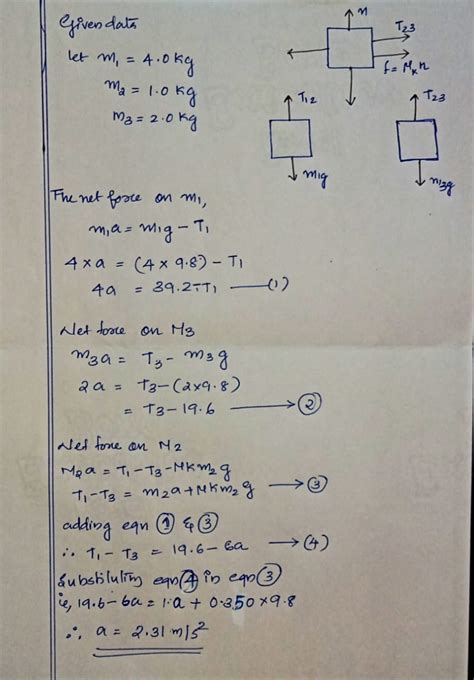 Given data
let m₁ = 4.0 kg
m₂ = 1.0 kg
m₃ = 2.0 kg
n
T₂₃
f = Mₖn
T₁₂
m₁g
T₂₃
m₃g
The net force on m₁,
m₁a = m₁g - T₁
4 × a = (4 × 9.8) - T₁
4a = 39.2 - T₁ —(1)
Net force on M₃
m₃a = T₃ - m₃g
2a = T₃ - (2×9.8)
= T₃ - 19.6 → ②
Net force on M₂
M₂a = T₁ - T₃ - MKm₂g
T₁ - T₃ = m₂a + MKm₂g → ③
adding eqn ① & ③
∴ T₁ - T₃ = 19.6 - 6a → (4)
Substituting eqn ④ in eqn ③
ie, 19.6 - 6a = 1·a + 0.350 × 9.8
∴ a = 2.31 m/s²